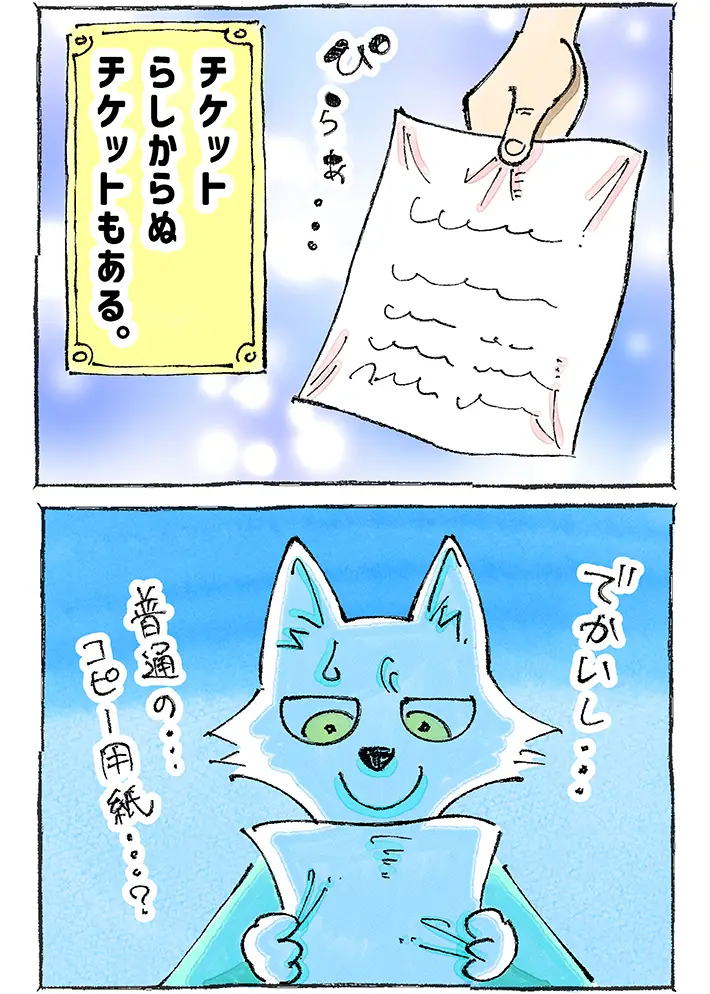 ぴらぁ...
チケット
らしからぬ
チケットもある。
でかいし...
普通の...
コピー用紙...?